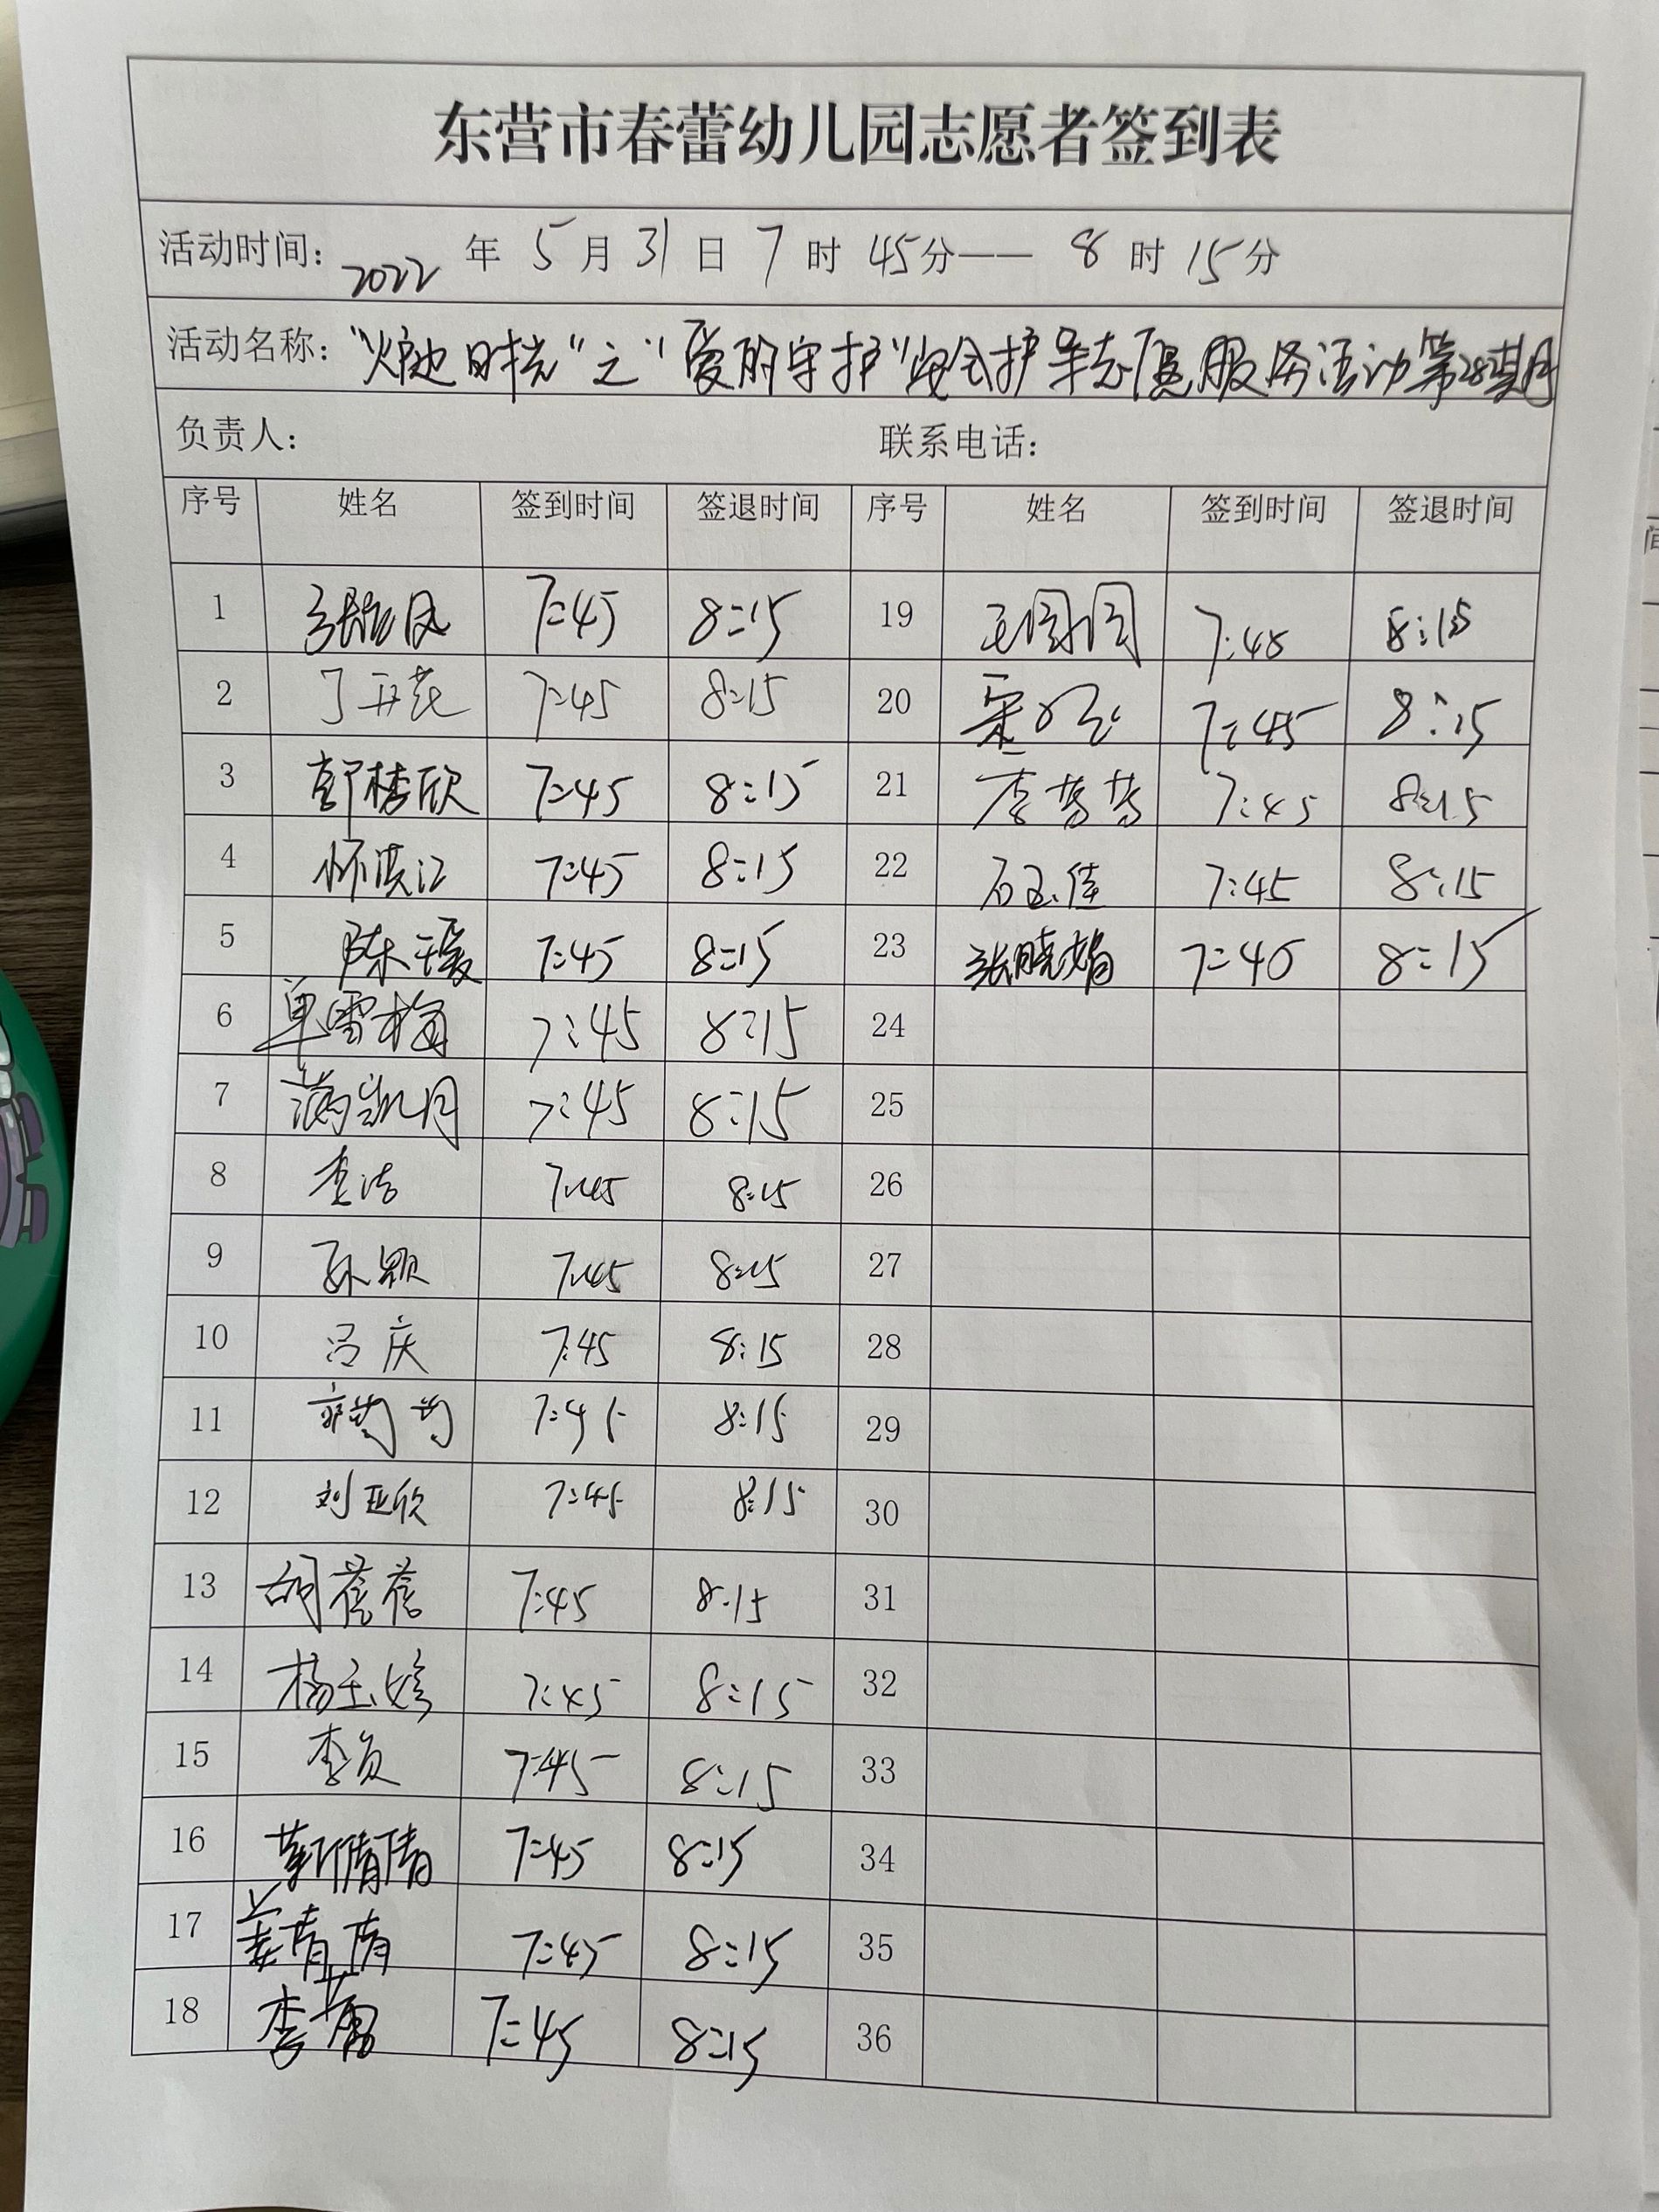 东营市春蕾幼儿园志愿者签到表
活动时间：2022 年 5 月 31 日 7 时 45 分—— 8 时 15 分
活动名称："炉边时光"之"爱的守护"安全护导志愿服务活动第28期
负责人： 联系电话：
序号 姓名 签到时间 签退时间 序号 姓名 签到时间 签退时间
1 7:45 8:15 19 王圆圆 7:45 8:15
2 丁再花 7:45 8:15 20 7:45 8:15
3 郭梦欣 7:45 8:15 21 李苗苗 7:45 8:15
4 怀洪江 7:45 8:15 22 石玉佳 7:45 8:15
5 陈瑗 7:45 8:15 23 张晓娟 7:40 8:15
6 单雪梅 7:45 8:15 24
7 满凯月 7:45 8:15 25
8 李洁 7:45 8:15 26
9 孙颖 7:45 8:15 27
10 吕庆 7:45 8:15 28
11 7:45 8:15 29
12 刘亚欣 7:45 8:15 30
13 胡蓓蓓 7:45 8:15 31
14 杨玉婷 7:45 8:15 32
15 李贞 7:45 8:15 33
16 靳倩倩 7:45 8:15 34
17 姜倩倩 7:45 8:15 35
18 李蕾 7:45 8:15 36